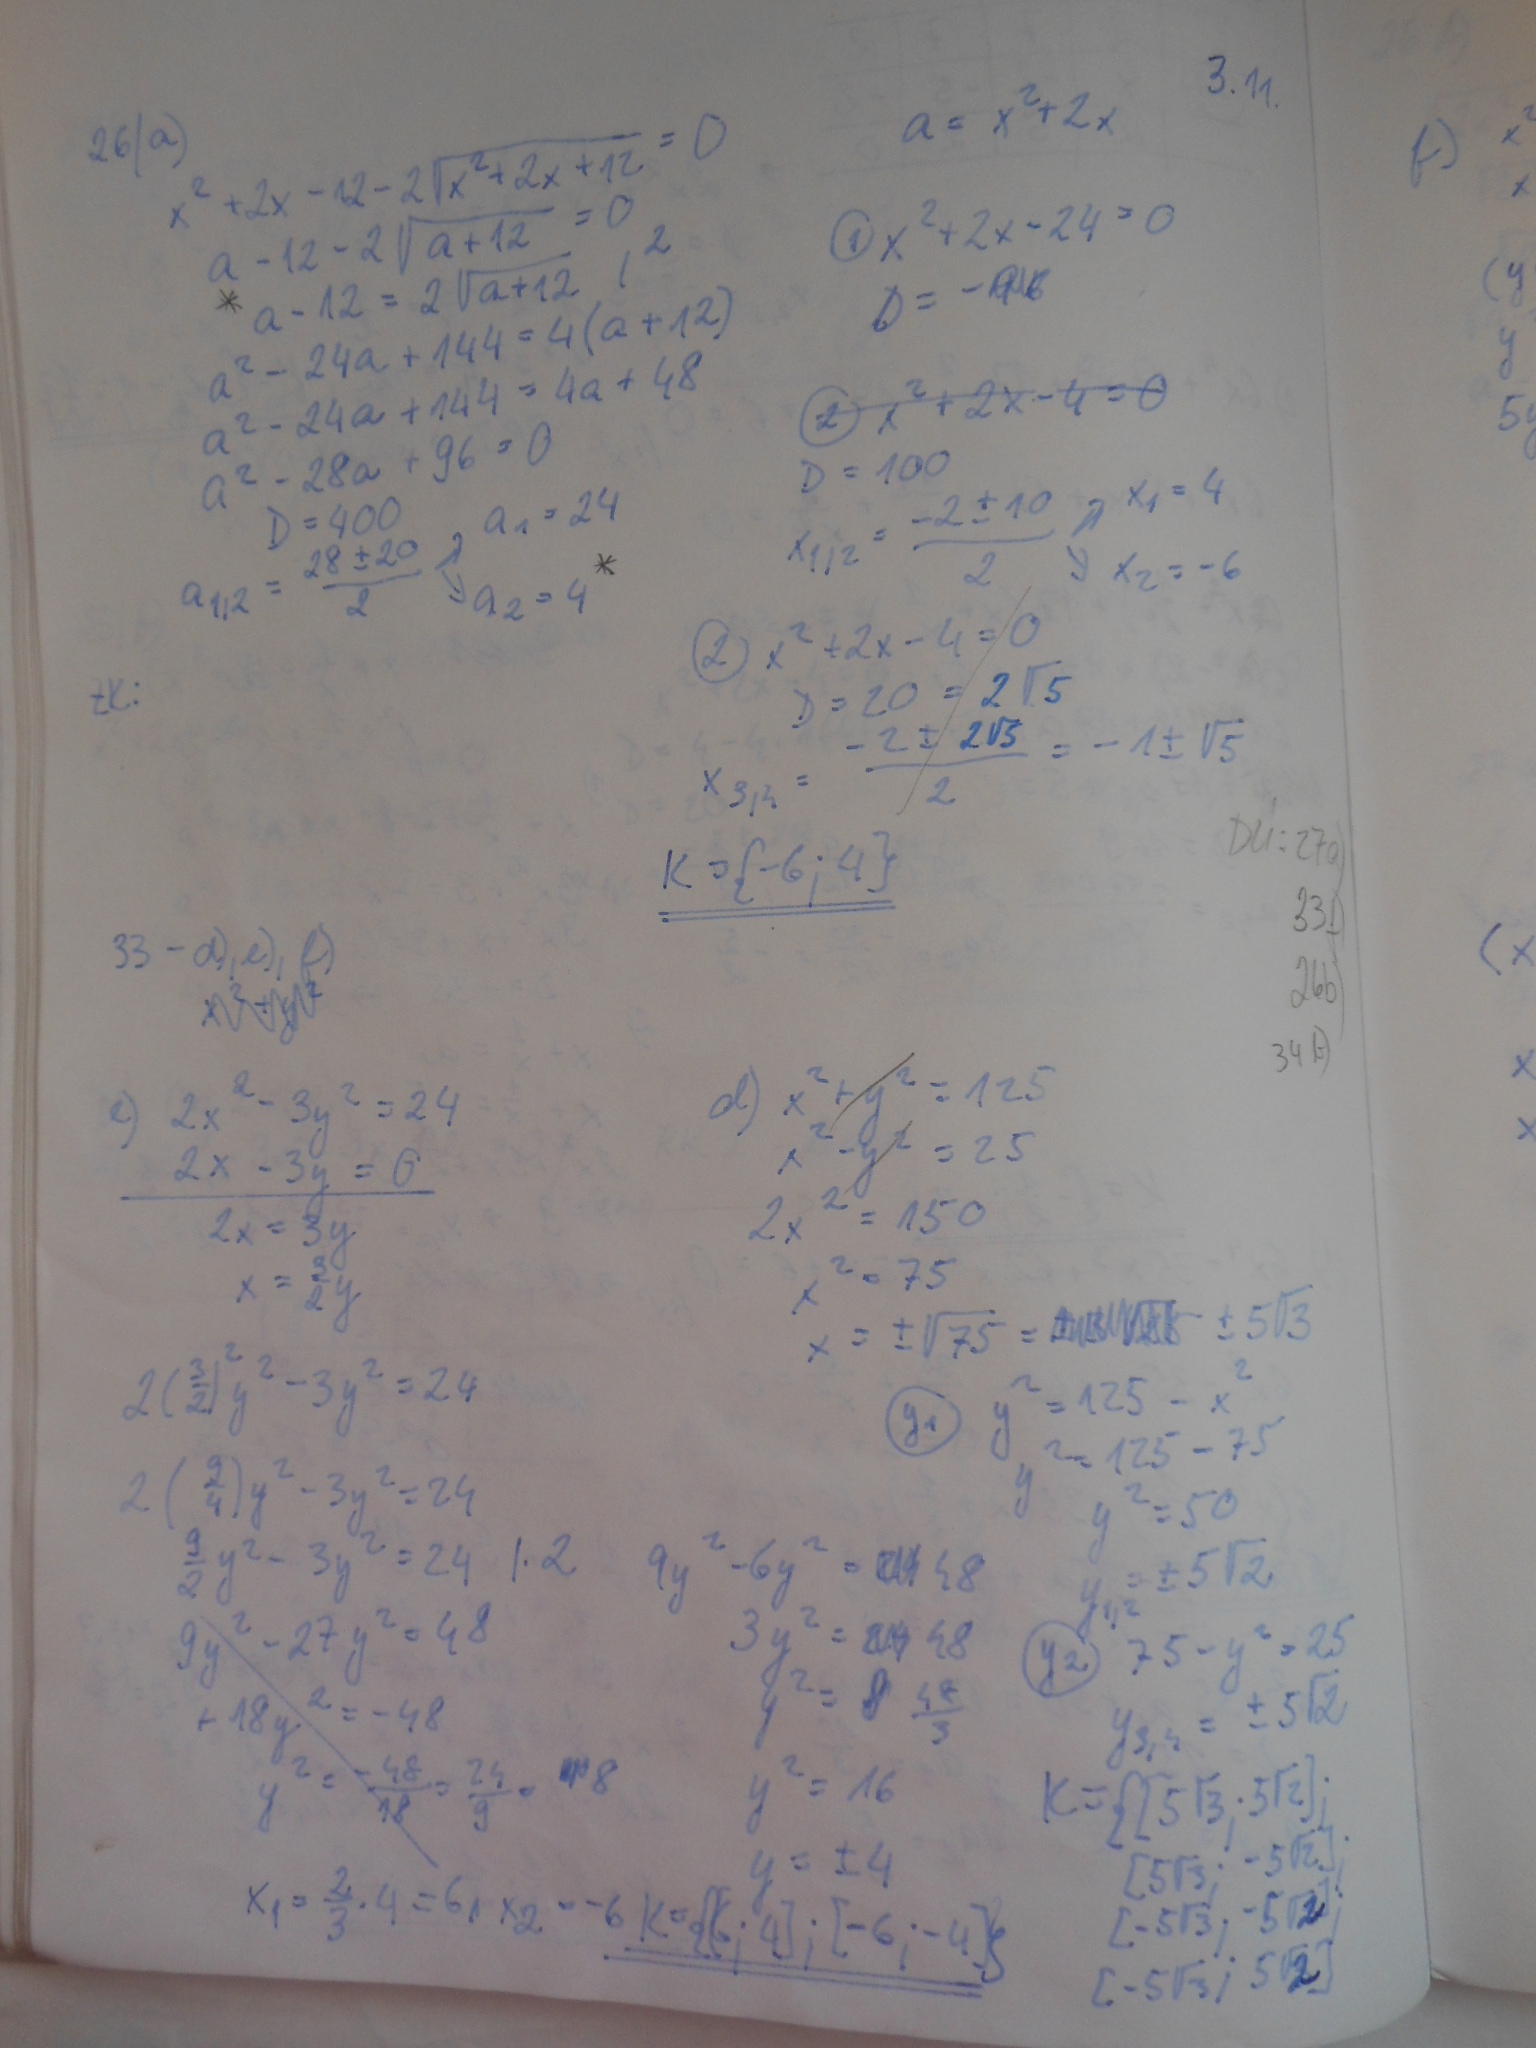 3.11.
26(a)
x² + 2x - 12 - 2√(x² + 2x + 12) = 0
a - 12 - 2√(a + 12) = 0
* a - 12 = 2√(a + 12) |²
a² - 24a + 144 = 4(a + 12)
a² - 24a + 144 = 4a + 48
a² - 28a + 96 = 0
D = 400
a₁,₂ = (28 ± 20)/2
a₁ = 24
a₂ = 4 *
zk:
a = x² + 2x
① x² + 2x - 24 = 0
② x² + 2x - 4 = 0
D = 100
x₁,₂ = (-2 ± 10)/2
x₁ = 4
x₂ = -6
② x² + 2x - 4 = 0
D = 20 = 2√5
x₃,₄ = (-2 ± 2√5)/2 = -1 ± √5
K = {-6; 4}
DÚ: 27a)
33f)
26b)
34b)
33 - d), e), f)
e) 2x² - 3y² = 24
2x - 3y = 0
2x = 3y
x = 3/2 y
2(3/2)² y² - 3y² = 24
2(9/4)y² - 3y² = 24
9/2 y² - 3y² = 24 |·2
9y² - 27y² = 48
+18y² = -48
y² = -48/18 = 24/9 = 8
9y² - 6y² = 48
3y² = 48
y² = 48/3
y² = 16
y = ±4
x₁ = 2/3 · 4 = 6, x₂ = -6
K = {[6; 4]; [-6; -4]}
d) x² + y² = 125
x² - y² = 25
2x² = 150
x² = 75
x = ±√75 = ±5√3
y₁ y² = 125 - x²
y² = 125 - 75
y² = 50
y₁,₂ = ±5√2
y₂ 75 - y² = 25
y₃,₄ = ±5√2
K = {[5√3; 5√2];
[5√3; -5√2];
[-5√3; -5√2];
[-5√3; 5√2]
f) x²
x
(y
y
5y
(x
x
x